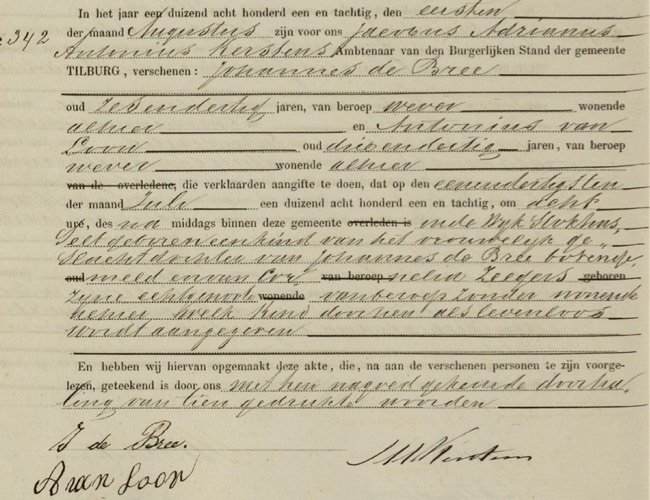 In het jaar een duizend acht honderd een en tachtig, den eersten
342 der maand Augustus zijn voor ons Jacobus Adrianus
Antonius Kerstens Ambtenaar van den Burgerlijken Stand der gemeente
TILBURG, verschenen: Johannes de Bree
oud zesendertig jaren, van beroep wever wonende
alhier en Antonius van
Loon oud drieendertig jaren, van beroep
wever wonende alhier
van de overledene, die verklaarden aangifte te doen, dat op den eenendertigsten
der maand Juli een duizend acht honderd een en tachtig, om acht
ure, des na middags binnen deze gemeente overleden is in de Wijk
geboren een kind van het vrouwelijk ge
slacht dochter van Johannes de Bree bovenge
oud meld en van Cor van beroep nelia Zeegers geboren
zijne echtgenoote wonende van beroep zonder wonende
alhier welk kind door hen als levenloos
wordt aangegeven
En hebben wij hiervan opgemaakt deze akte, die, na aan de verschenen personen te zijn voorge-
lezen, geteekend is door ons met hen na goed gekeurde doorha
ling van tien gedrukte woorden
J de Bree.
A van Loon